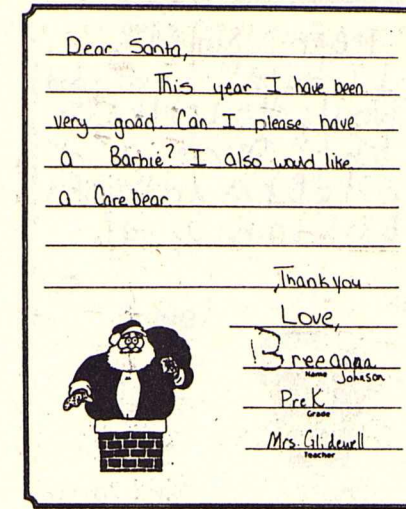 Dear Santa,
This year I have been
very good. Can I please have
a Barbie? I also would like
a Care bear.
Thank you
Love,
Breeanna
Name Johnson
Pre K
Grade
Mrs. Glidewell
Teacher